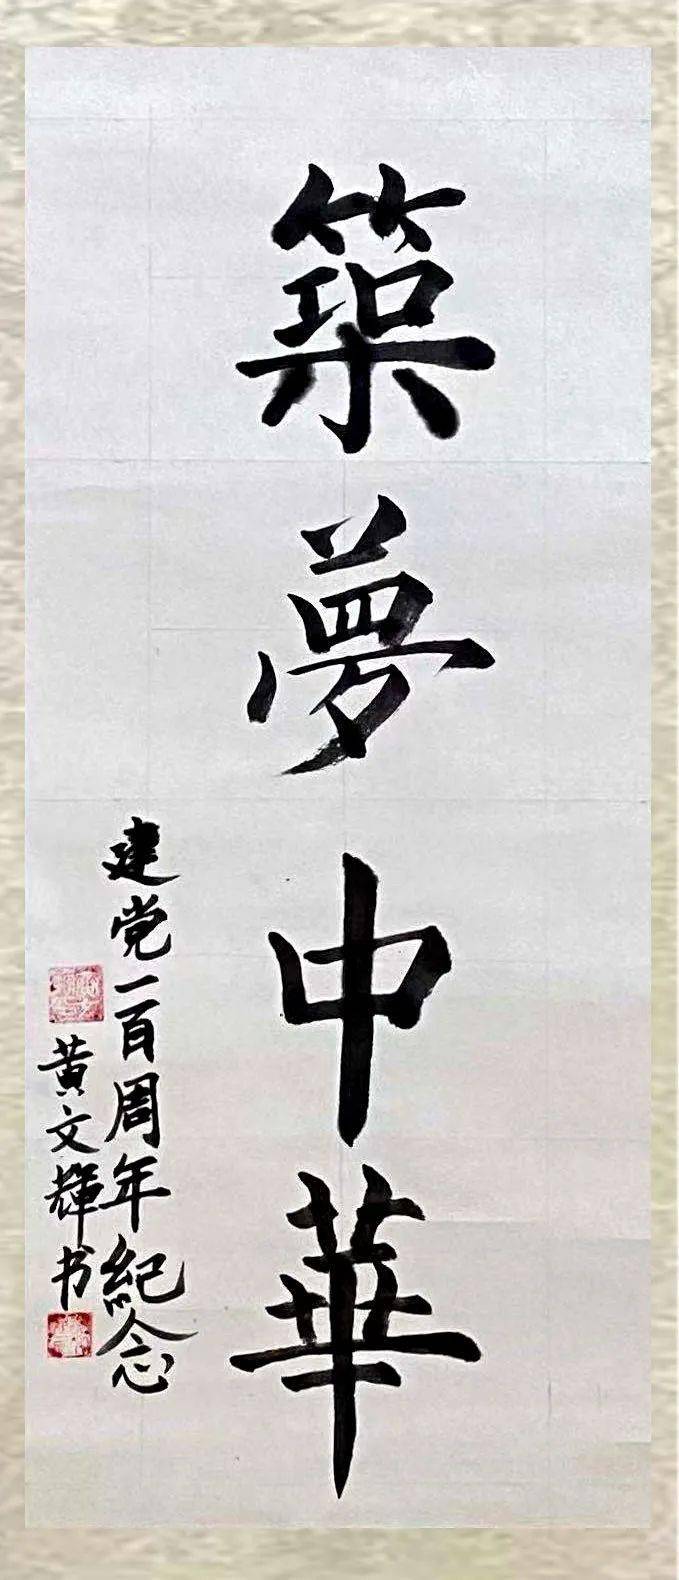 築夢中華
建党一百周年紀念
黄文輝书